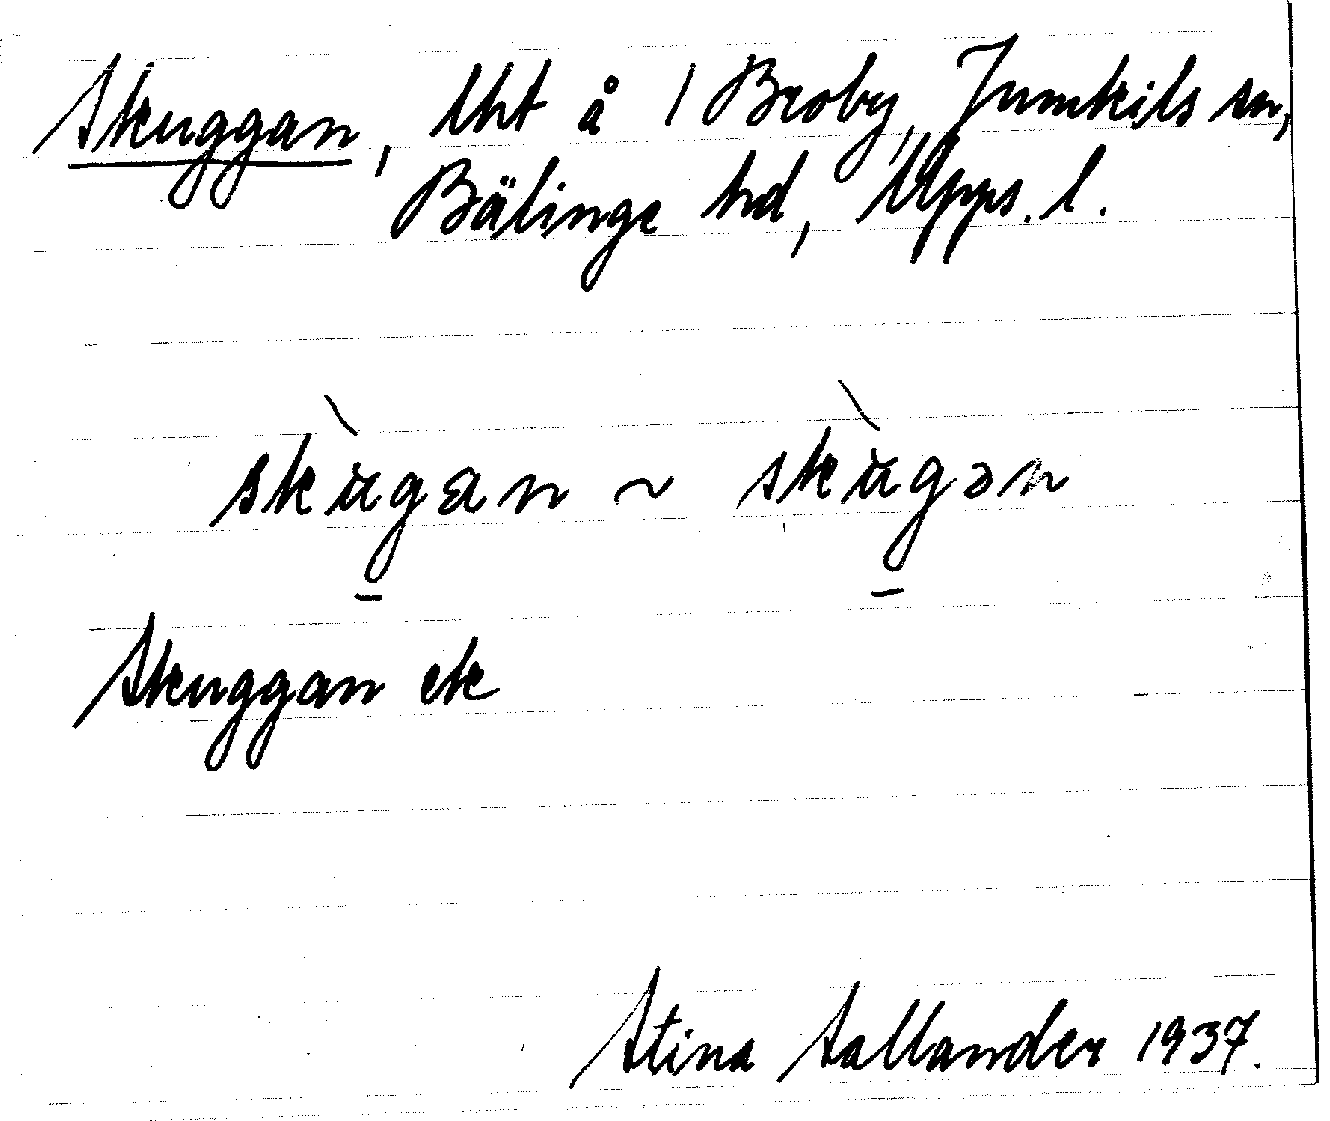 Skuggan, lht å 1 Broby, Jumkils sn,
Bälinge hd, Upps. l.
skùgan ~ skùgən
Skuggan ek
Stina Sallander 1937.